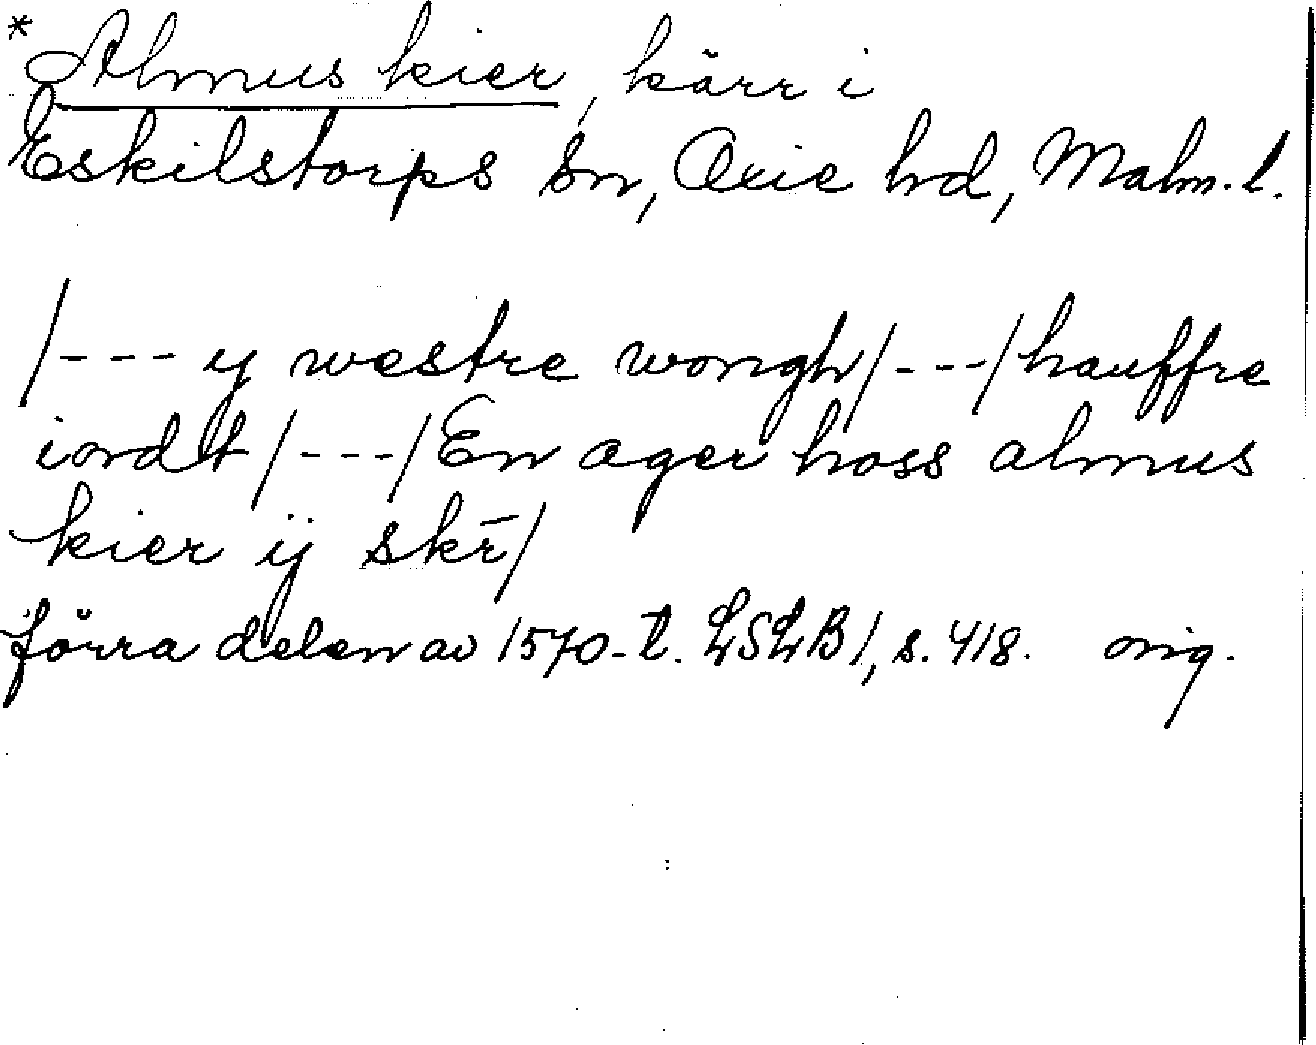 *Almus kier, kärr i
Eskilstorps sn, Oxie hd, Malm. l.
/--- y westre wongh/---/hauffre
iordt/---/En ager hoss almus
kier ij skr̄/
förra delen av 1570-t. LSLB1, s. 418. orig.